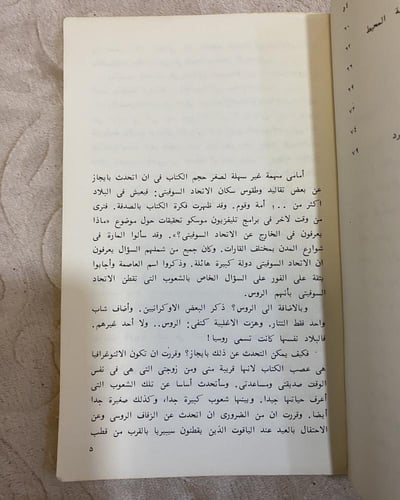 أمامى مهمة غير سهلة لصغر حجم الكتاب في ان اتحدث بايجاز
عن بعض تقاليد وطقوس سكان الاتحاد السوفيتى: فيعيش فى البلاد
اكثر من ١٠٠ أمة وقوم. وقد ظهرت فكرة الكتاب بالصدفة. فترى
من وقت لاخر فى برامج تليفزيون موسكو تحقيقات حول موضوع «ماذا
يعرفون في الخارج عن الاتحاد السوفيتى؟». وقد سألوا المارة فى
شوارع المدن بمختلف القارات. وكان جميع من شملهم السؤال يعرفون
ان الاتحاد السوفيتى دولة كبيرة هائلة. وذكروا اسم العاصمة وأجابوا
بثقة على الفور على السؤال الخاص بالشعوب التى تقطن الاتحاد
السوفيتى بأنهم الروس.
وبالاضافة الى الروس؟ ذكر البعض الاوكرانيين. وأضاف شاب
واحد فقط التتار. وهزت الاغلبية كتفى: الروس.. ولا أحد غيرهم.
فالبلاد نفسها كانت تسمى روسيا!
فكيف يمكن التحدث عن ذلك بايجاز؟ وقررت ان تكون الاثنوغرافيا
هى عصب الكتاب لانها قريبة منى ومن زوجتى التى هى فى نفس
الوقت صديقتى ومساعدتى. وسأتحدث أساسا عن تلك الشعوب التى
أعرف حياتها جيدا. وبينها شعوب كبيرة جدا، وكذلك صغيرة جدا
أيضا. وقررت ان من الضرورى ان اتحدث عن الزفاف الروسى وعن
الاحتفال بالعيد عند الياقوت الذين يقطنون سيبيريا بالقرب من قطب
٥
ة المحيط
٢٠
٢٧
٢٩
رد
٧٤
٧٩